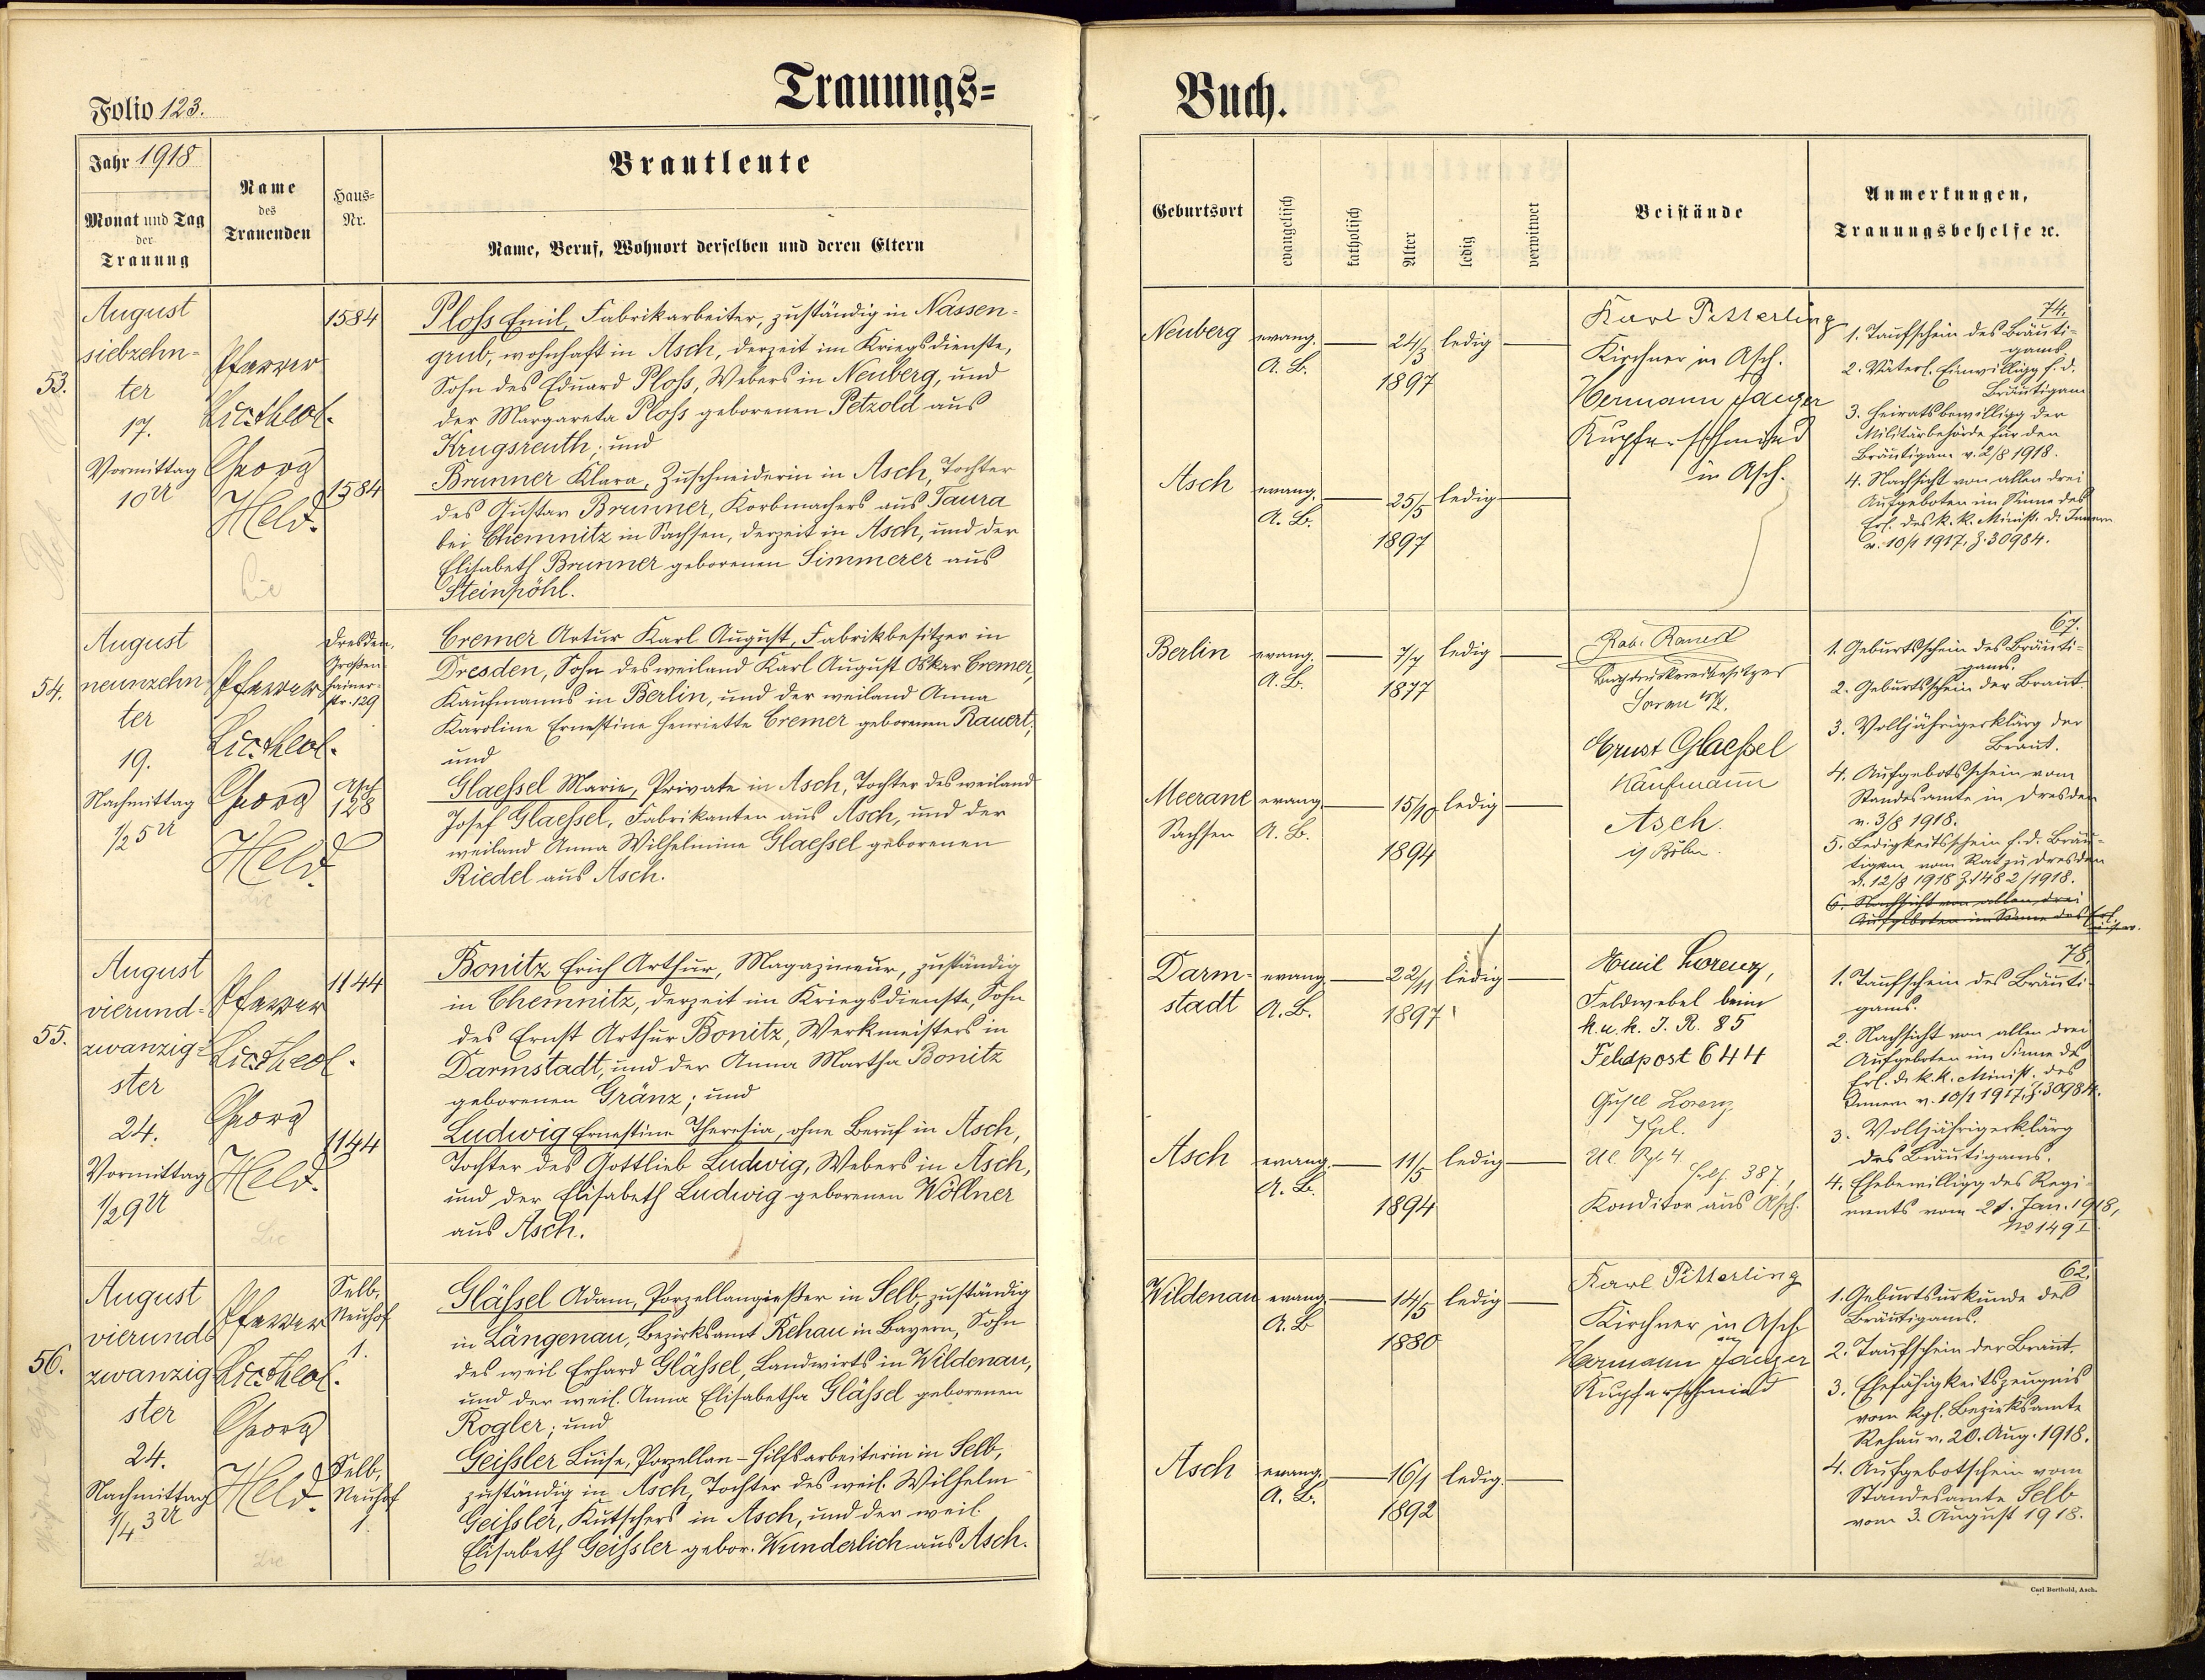 Trauungs=
Buch.
Folio 123.
Jahr 1918
Monat und Tag
der
Trauung
Name
des
Trauenden
Haus=
Nr.
Brautleute
Name, Beruf, Wohnort derselben und deren Eltern
Geburtsort
evangelisch
katholisch
Alter
ledig
verwitwet
Beistände
Anmerkungen,
Trauungsbehelfe ꝛc.
53.
August
siebzehn-
ter
17.
Vormittag
10 U
Pfarrer
Lic. theol.
Georg
Held.
1584
1584
Ploss Emil, Fabrikarbeiter, zuständig in Nassen-
grub, wohnhaft in Asch, derzeit im Kriegsdienste,
Sohn des Eduard Ploss, Webers in Neuberg, und
der Margareta Ploss geborenen Petzold aus
Krugsreuth; und
Brunner Klara, Zuschneiderin in Asch, Tochter
des Gustav Brunner, Korbmachers aus Taura
bei Chemnitz in Sachsen, derzeit in Asch, und der
Elisabeth Brunner geborenen Simmerer aus
Steinpöhl.
Neuberg evang. 24/3 ledig
A. B. 1897
Asch evang. 25/5 ledig
A. B. 1897
Karl Pitterling
Kirchner in Asch.
Hermann Jaeger
Kupferschmied
in Asch.
74.
1. Taufschein des Bräuti-
gams
2. Väterl. Einwilligg f. d.
Bräutigam
3. Heiratsbewilligg der
Militärbehörde für den
Bräutigam v. 2/8 1918.
4. Nachsicht von allen drei
Aufgeboten im Sinne des
Erl. des k. k. Minist. d. Innern
v. 10/1 1917, Z. 30984.
54.
August
neunzehn
ter
19.
Nachmittag
1/2 5 U
Pfarrer
Lic. theol.
Georg
Held.
Dresden,
Großen-
hainer-
str. 129
Asch
128
Cremer Artur Karl August, Fabrikbesitzer in
Dresden, Sohn des weiland Karl August Oskar Cremer,
Kaufmanns in Berlin, und der weiland Anna
Karoline Ernestine Henriette Cremer geborenen Rauert;
und
Glaessel Marie, Private in Asch, Tochter des weiland
Josef Glaessel, Fabrikanten aus Asch, und der
weiland Anna Wilhelmine Glaessel geborenen
Riedel aus Asch.
Berlin evang. 7/7 ledig
A. B. 1877
Meerane evang. 15/10 ledig
Sachsen A. B. 1894
Buchdruckereibesitzer
Ernst Glaessel
Kaufmann
Asch
67.
1. Geburtsschein des Bräuti-
gams.
2. Geburtsschein der Braut.
3. Volljährigerklärg der
Braut.
4. Aufgebotsschein vom
Standesamte in Dresden
v. 3/8 1918.
5. Ledigkeitsschein f. d. Bräu-
tigam vom Rat zu Dresden
v. 12/8 1918 Z. 1482/1918.
6. Nachsicht von allen drei
Aufgeboten im Sinne des Erl.
55.
August
vierund-
zwanzig-
ster
24.
Vormittag
1/2 9 U
Pfarrer
Lic. theol.
Georg
Held.
1144
1144
Bonitz Erich Arthur, Magazineur, zuständig
in Chemnitz, derzeit im Kriegsdienste, Sohn
des Ernst Arthur Bonitz, Werkmeisters in
Darmstadt, und der Anna Martha Bonitz
geborenen Gränz; und
Ludwig Ernestine Theresia, ohne Beruf in Asch,
Tochter des Gottlieb Ludwig, Webers in Asch,
und der Elisabeth Ludwig geborenen Wöllner
aus Asch.
Darm- evang. 22/11 ledig
stadt A. B. 1897
Asch evang. 11/5 ledig
A. B. 1894
Emil Lorenz,
Feldwebel beim
k. u. k. I. R. 85
Feldpost 644
Lorenz
387,
Konditor aus Asch.
78.
1. Taufschein des Bräuti-
gams.
2. Nachsicht von allen drei
Aufgeboten im Sinne des
Erl. d. k. k. Minist. des
Innern v. 10/1 1917, Z. 30984.
3. Volljährigerklärg
des Bräutigams.
4. Ehebewilligg des Regi-
ments vom 21. Jan. 1918,
No 149 I.
56.
August
vierund-
zwanzig
ster
24.
Nachmittag
1/4 3 U
Pfarrer
Lic. theol.
Georg
Held.
Selb,
Neuhof
1.
Selb,
Neuhof
1.
Glässel Adam, Porzellangießer in Selb, zuständig
in Längenau, Bezirksamt Rehau in Bayern, Sohn
des weil Erhard Glässel, Landwirts in Wildenau,
und der weil. Anna Elisabetha Glässel geborenen
Rogler; und
Geissler Luise, Porzellan-Hilfsarbeiterin in Selb,
zuständig in Asch, Tochter des weil. Wilhelm
Geissler, Kutschers in Asch, und der weil
Elisabeth Geissler gebor. Wunderlich aus Asch.
Wildenau evang. 14/5 ledig
A. B 1880
Asch evang. 16/1 ledig.
A. B. 1892
Karl Pitterling
Kirchner in Asch
Hermann Jaeger
Kupferschmied
62.
1. Geburtsurkunde des
Bräutigams.
2. Taufschein der Braut.
3. Ehefähigkeitszeugnis
vom kgl. Bezirksamte
Rehau v. 20. Aug. 1918.
4. Aufgebotschein vom
Standesamte Selb
vom 3. August 1918.
Carl Berthold, Asch.